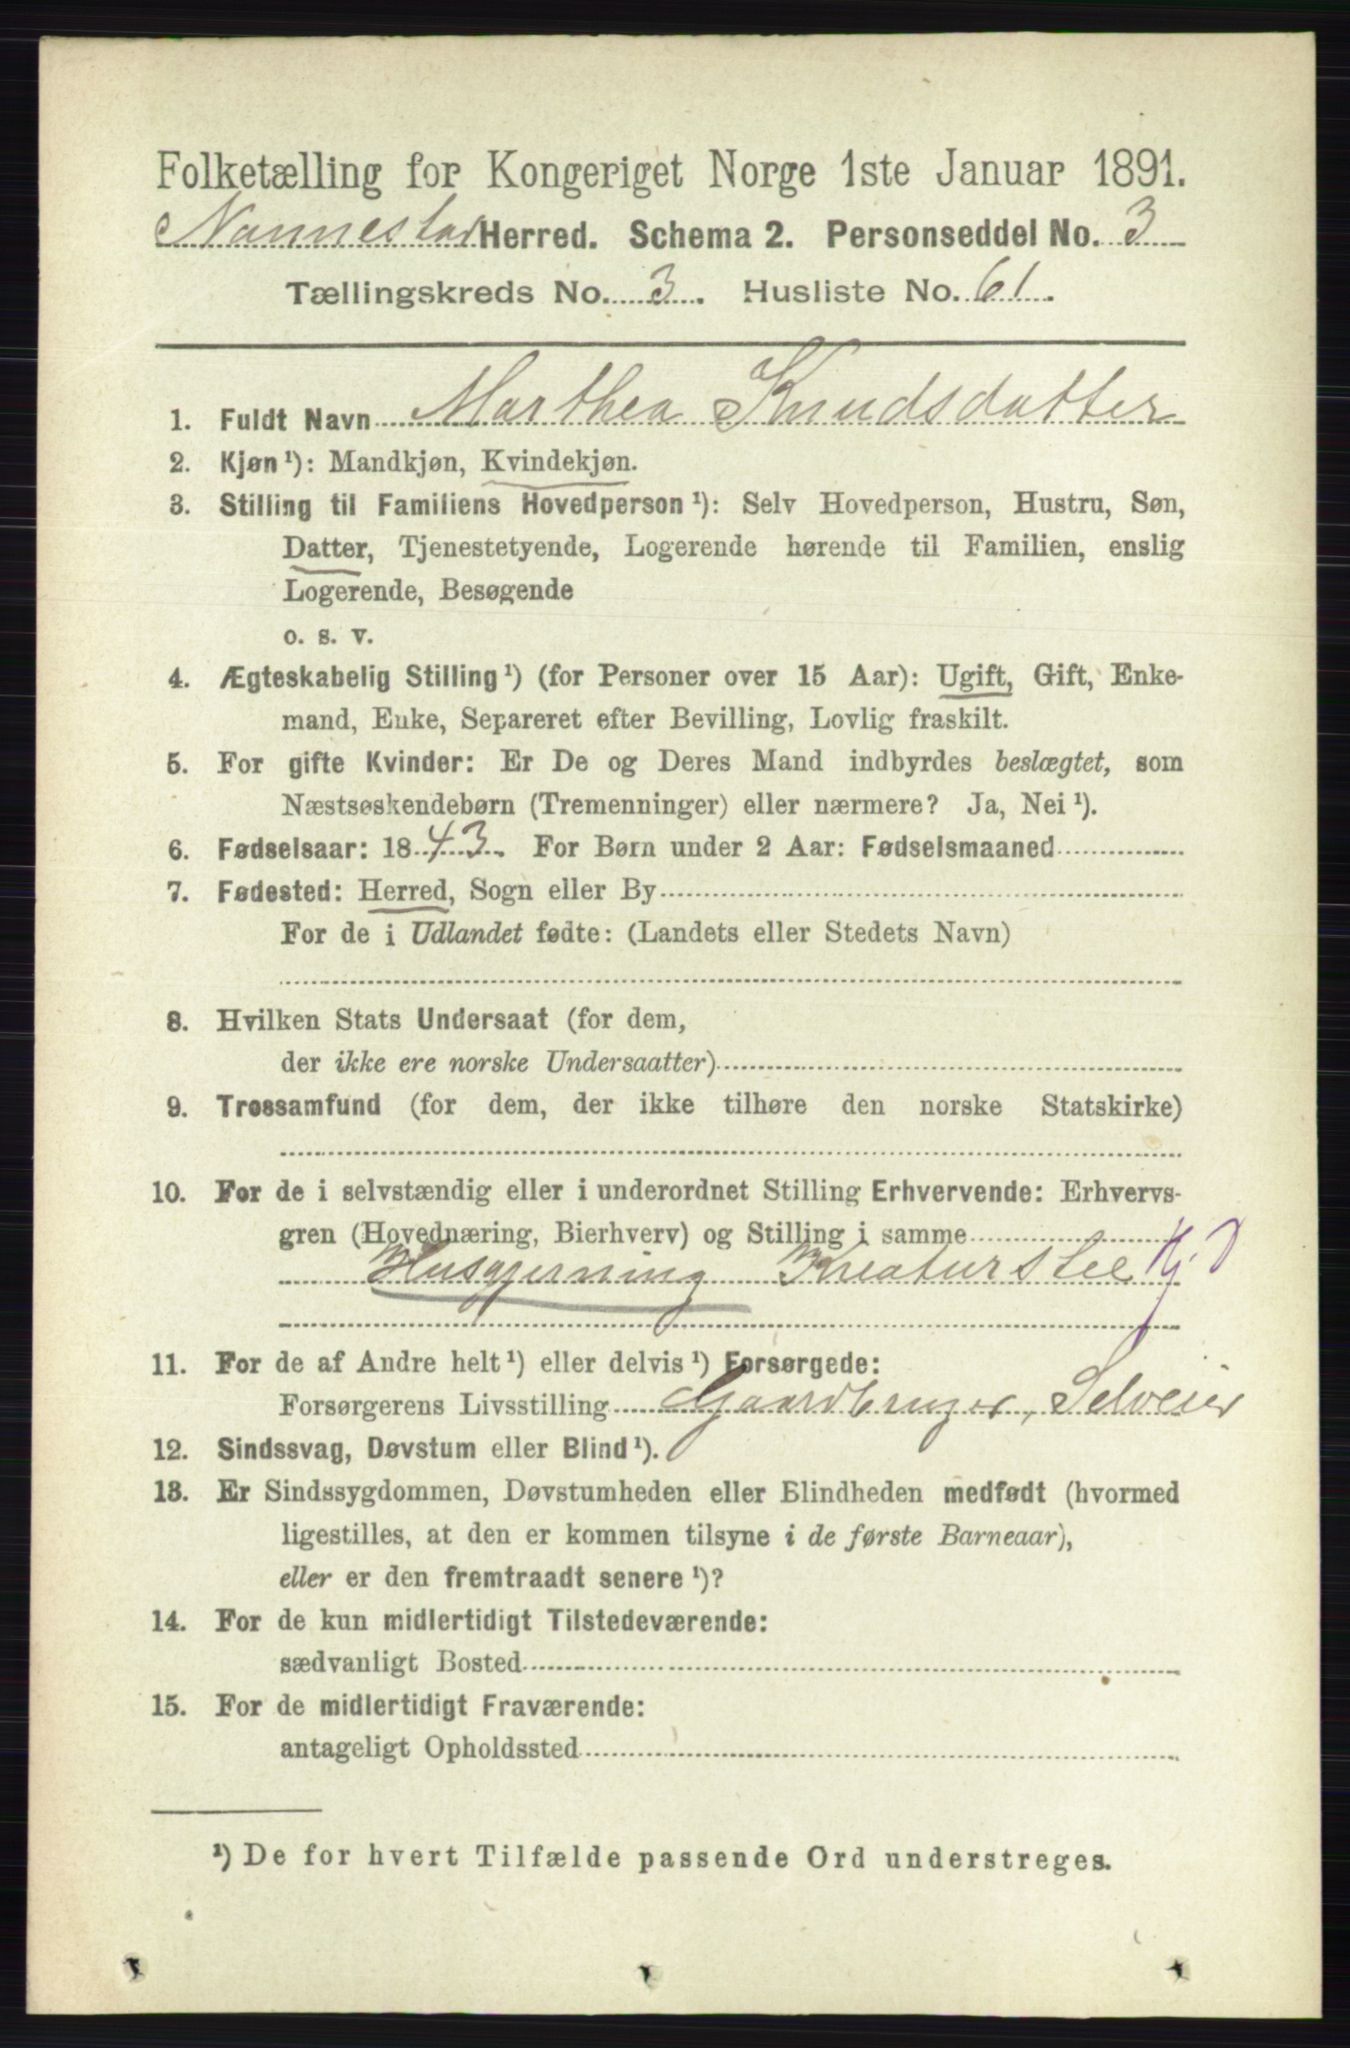 Folketælling for Kongeriget Norge 1ste Januar 1891.
Nannestad Herred. Schema 2. Personseddel No. 3
Tællingskreds No. 3. Husliste No. 61.
1. Fuldt Navn Marthea Knudsdatter
2. Kjøn¹): Mandkjøn, Kvindekjøn.
3. Stilling til Familiens Hovedperson¹): Selv Hovedperson, Hustru, Søn,
Datter, Tjenestetyende, Logerende hørende til Familien, enslig
Logerende, Besøgende
o. s. v.
4. Ægteskabelig Stilling¹) (for Personer over 15 Aar): Ugift, Gift, Enke-
mand, Enke, Separeret efter Bevilling, Lovlig fraskilt.
5. For gifte Kvinder: Er De og Deres Mand indbyrdes beslægtet, som
Næstsøskendebørn (Tremenninger) eller nærmere? Ja, Nei¹).
6. Fødselsaar: 1843. For Børn under 2 Aar: Fødselsmaaned
7. Fødested: Herred, Sogn eller By
For de i Udlandet fødte: (Landets eller Stedets Navn)
8. Hvilken Stats Undersaat (for dem,
der ikke ere norske Undersaatter)
9. Trossamfund (for dem, der ikke tilhøre den norske Statskirke)
10. For de i selvstændig eller i underordnet Stilling Erhvervende: Erhvervs-
gren (Hovednæring, Bierhverv) og Stilling i samme
Husgjerning Kreaturstel
11. For de af Andre helt¹) eller delvis¹) Forsørgede:
Forsørgerens Livsstilling Gaardbruger, Selveier
12. Sindssvag, Døvstum eller Blind¹).
13. Er Sindssygdommen, Døvstumheden eller Blindheden medfødt (hvormed
ligestilles, at den er kommen tilsyne i de første Barneaar),
eller er den fremtraadt senere¹)?
14. For de kun midlertidigt Tilstedeværende:
sædvanligt Bosted
15. For de midlertidigt Fraværende:
antageligt Opholdssted
¹) De for hvert Tilfælde passende Ord understreges.